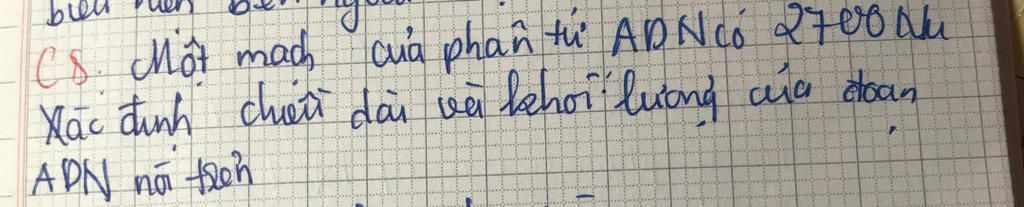 biểu hiện bên ngoài
C8. Một mạch của phân tử ADN có 2700 Nu
Xác định chiều dài và khối lượng của đoạn
ADN nói trên